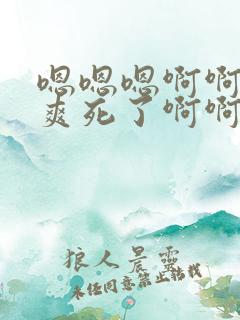 嗯嗯嗯啊啊
爽死了啊啊
狼人晨靈
未经同意禁止转载